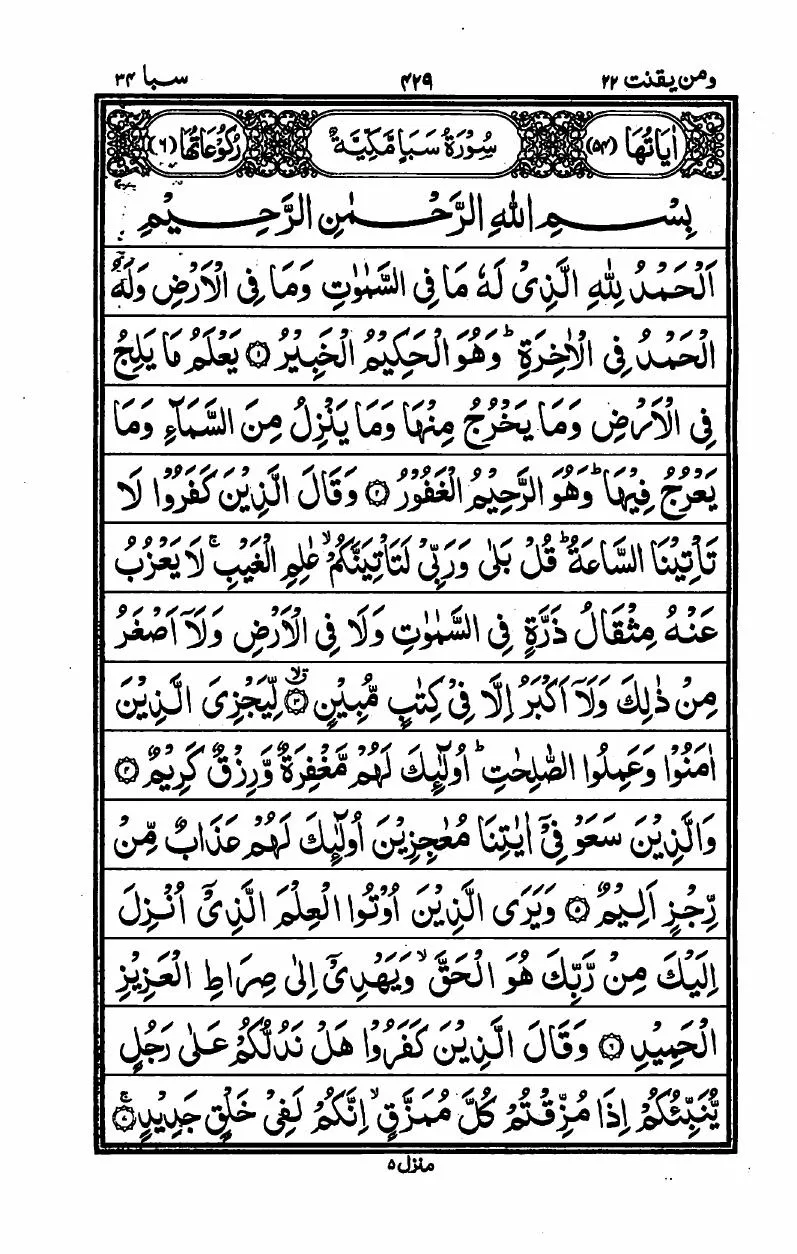 ومن يقنت ٢٢ ٤٢٩ سبا ٣٤
اٰيَاتُهَا (٥٤) سُوْرَةُ سَبَاٍ مَّكِّيَّةٌ رُكُوْعَاتُهَا (٦)
بِسْمِ اللّٰهِ الرَّحْمٰنِ الرَّحِيْمِ
اَلْحَمْدُ لِلّٰهِ الَّذِىْ لَهٗ مَا فِى السَّمٰوٰتِ وَمَا فِى الْاَرْضِ وَلَهُ
الْحَمْدُ فِى الْاٰخِرَةِ ؕ وَهُوَ الْحَكِيْمُ الْخَبِيْرُ ۝۱ يَعْلَمُ مَا يَلِجُ
فِى الْاَرْضِ وَمَا يَخْرُجُ مِنْهَا وَمَا يَنْزِلُ مِنَ السَّمَآءِ وَمَا
يَعْرُجُ فِيْهَا ؕ وَهُوَ الرَّحِيْمُ الْغَفُوْرُ ۝۲ وَقَالَ الَّذِيْنَ كَفَرُوْا لَا
تَاْتِيْنَا السَّاعَةُ ؕ قُلْ بَلٰى وَرَبِّىْ لَتَاْتِيَنَّكُمْ ۙ عٰلِمِ الْغَيْبِ ۚ لَا يَعْزُبُ
عَنْهُ مِثْقَالُ ذَرَّةٍ فِى السَّمٰوٰتِ وَلَا فِى الْاَرْضِ وَلَاۤ اَصْغَرُ
مِنْ ذٰلِكَ وَلَاۤ اَكْبَرُ اِلَّا فِىْ كِتٰبٍ مُّبِيْنٍ ۝۳ لِّيَجْزِىَ الَّذِيْنَ
اٰمَنُوْا وَعَمِلُوا الصّٰلِحٰتِ ؕ اُولٰٓئِكَ لَهُمْ مَّغْفِرَةٌ وَّرِزْقٌ كَرِيْمٌ ۝۴
وَالَّذِيْنَ سَعَوْ فِىْۤ اٰيٰتِنَا مُعٰجِزِيْنَ اُولٰٓئِكَ لَهُمْ عَذَابٌ مِّنْ
رِّجْزٍ اَلِيْمٌ ۝۵ وَيَرَى الَّذِيْنَ اُوْتُوا الْعِلْمَ الَّذِىْۤ اُنْزِلَ
اِلَيْكَ مِنْ رَّبِّكَ هُوَ الْحَقَّ ۙ وَيَهْدِىْۤ اِلٰى صِرَاطِ الْعَزِيْزِ
الْحَمِيْدِ ۝۶ وَقَالَ الَّذِيْنَ كَفَرُوْا هَلْ نَدُلُّكُمْ عَلٰى رَجُلٍ
يُّنَبِّئُكُمْ اِذَا مُزِّقْتُمْ كُلَّ مُمَزَّقٍ ۙ اِنَّكُمْ لَفِىْ خَلْقٍ جَدِيْدٍ ۚ ۝۷
منزل ٥